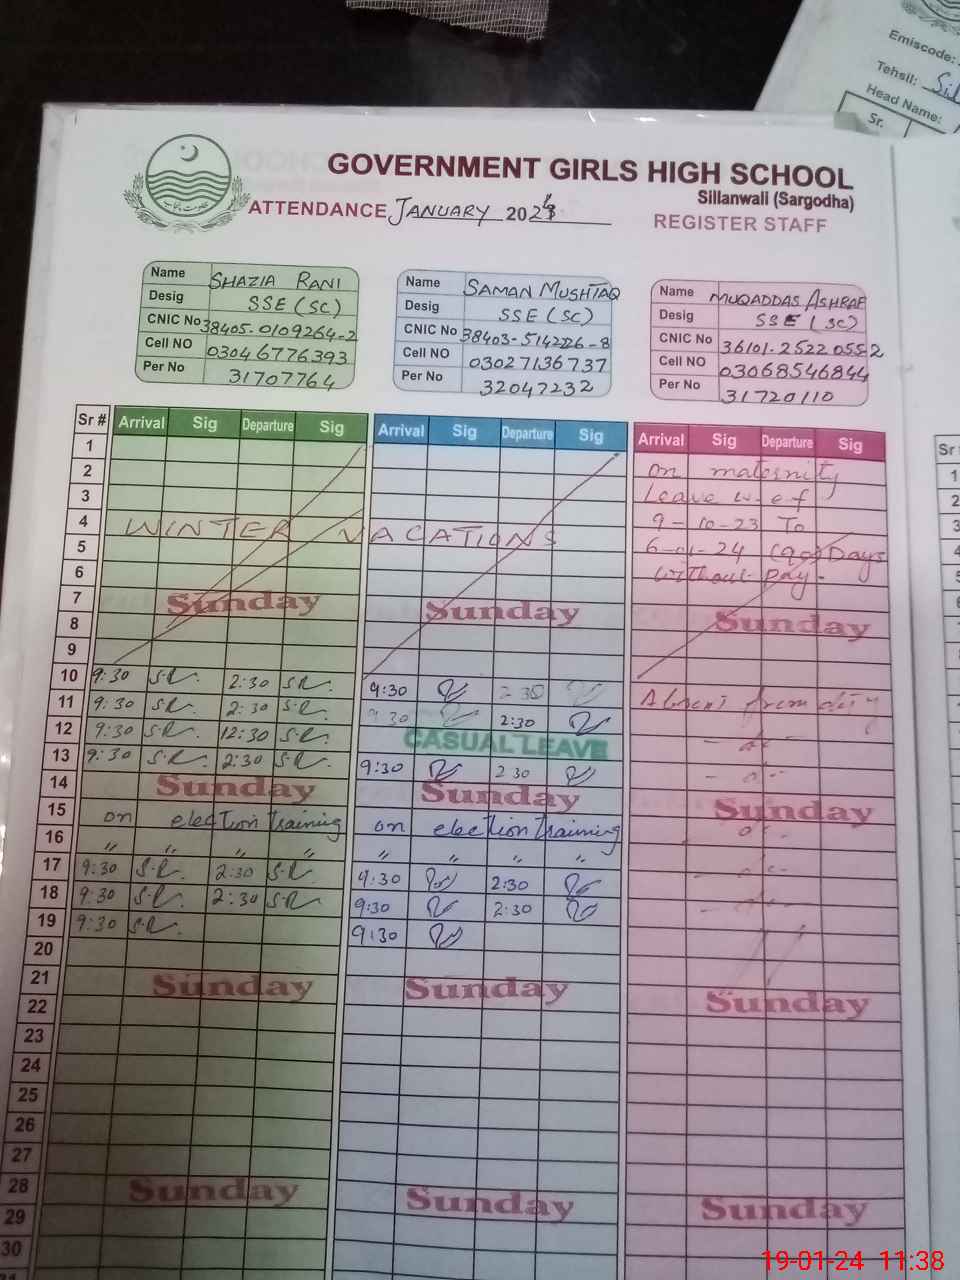 Emiscode:
Tehsil: Sil
Head Name:
Sr.
GOVERNMENT GIRLS HIGH SCHOOL
Sillanwali (Sargodha)
ATTENDANCE JANUARY 2024
REGISTER STAFF
Name SHAZIA RANI
Desig SSE (SC)
CNIC No 38405-0109264-2
Cell NO 03046776393
Per No 31707764
Name SAMAN MUSHTAQ
Desig SSE (SC)
CNIC No 38403-5142226-8
Cell NO 03027136737
Per No 32047232
Name MUQADDAS ASHRAF
Desig SSE (SC)
CNIC No 36101-2522055-2
Cell NO 03068546844
Per No 31720110
Sr # Arrival Sig Departure Sig Arrival Sig Departure Sig Arrival Sig Departure Sig
1 on maternity
2 Leave w.e.f
3 9-10-23 To
4 WINTER VACATIONS 6-01-24 (90) Days
5 without pay.
6
7 Sunday Sunday Sunday
8
9
10 9:30 S.R. 2:30 S.R. 9:30 2:30
11 9:30 S.R. 2:30 S.R. 9:30 2:30 Absent from duty
12 9:30 S.R. 12:30 S.R. CASUAL LEAVE -do-
13 9:30 S.R. 2:30 S.R. 9:30 2:30 -do-
14 Sunday Sunday Sunday
15 on election training on election training -do-
16 " " " " " " " "
17 9:30 S.R. 2:30 S.R. 9:30 2:30 -do-
18 9:30 S.R. 2:30 S.R. 9:30 2:30 -do-
19 9:30 S.R. 9:30
20
21 Sunday Sunday Sunday
22
23
24
25
26
27
28 Sunday Sunday Sunday
29
30
19-01-24 11:38